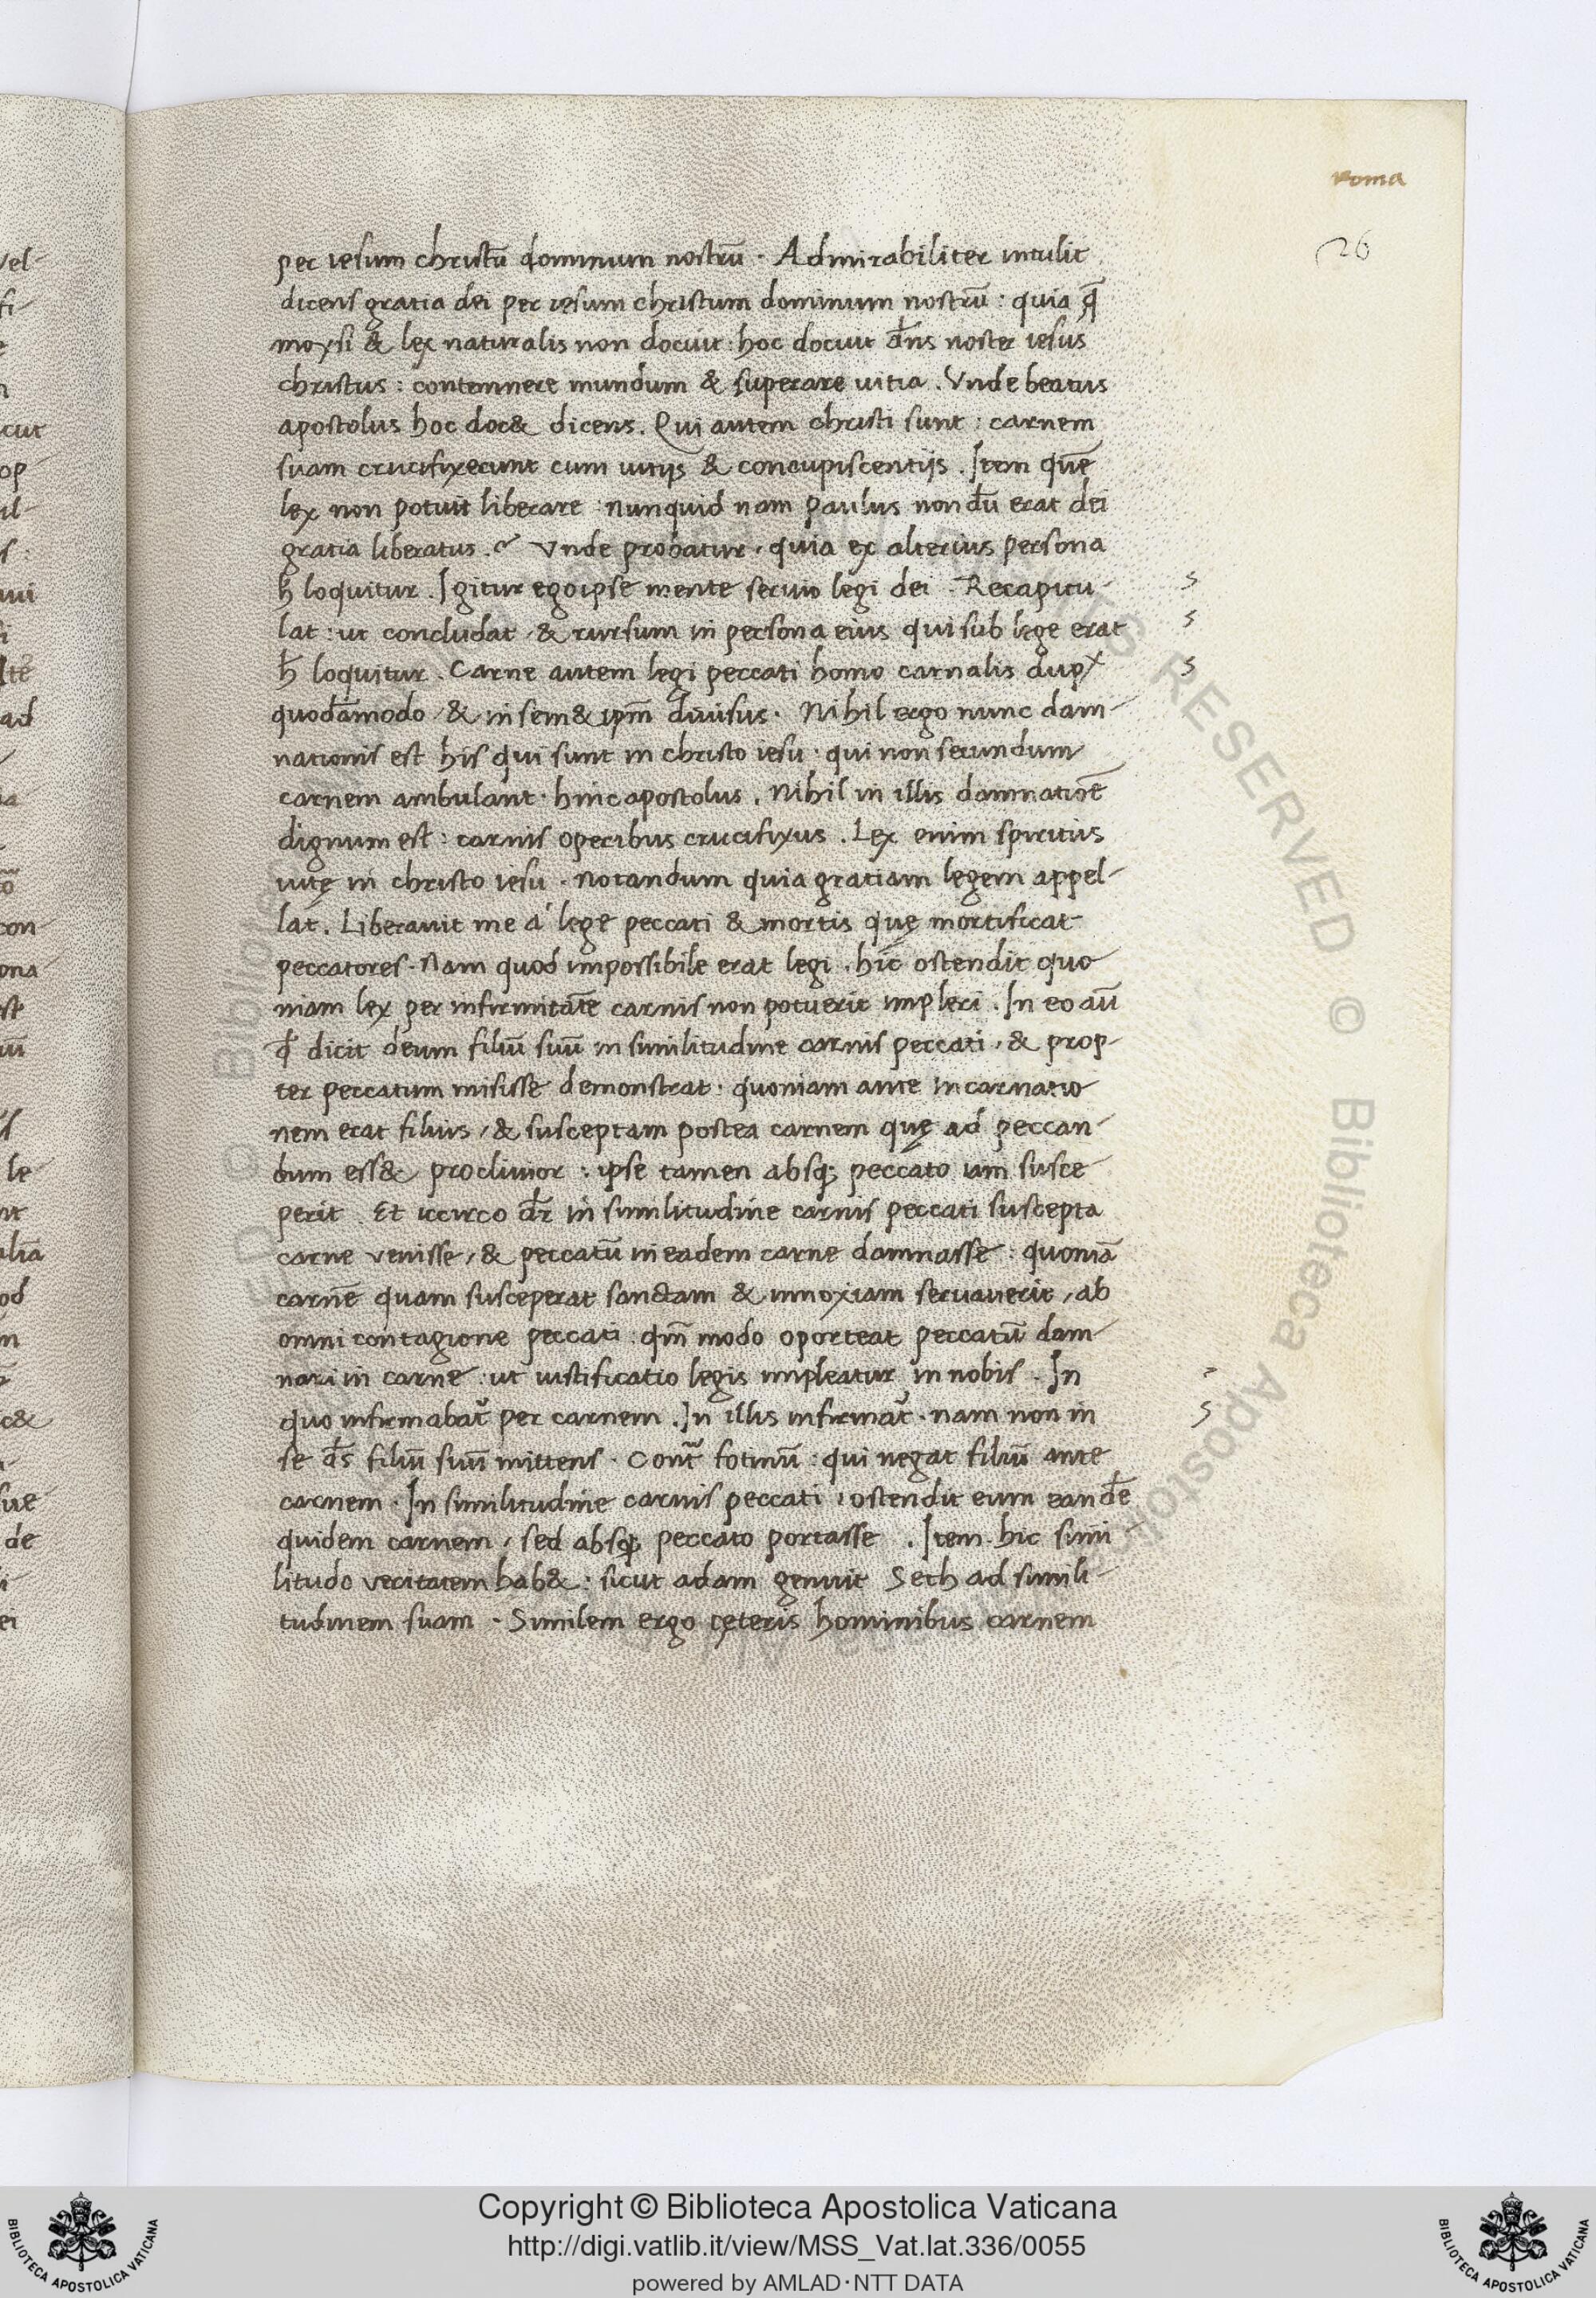 Roma
26
per iesum christū dominum nostrū · Admirabiliter intulit
dicens gratia dei per iesum christum dominum nostrū : quia qđ
moysi & lex naturalis non docuit : hoc docuit dn̄s noster iesus
christus : contemnere mundum & superare uitia . Vnde beatus
apostolus hoc doc& dicens . Qui autem christi sunt : carnem
suam crucifixerunt cum uitijs & concupiscentijs . Item quē
lex non potuit liberare : nunquid nam paulus nondū erat dei
gratia liberatus . Vnde probatur , quia ex alterius persona
h̄ loquitur . Igitur ego ipse mente seruio legi dei . Recapitu-
lat : ut concludat , & rursum in persona eius qui sub lege erat
h̄ loquitur . Carne autem legi peccati homo carnalis dupx
quodāmodo , & in sem& ipm̄ diuisus . Nihil ergo nunc dam-
nationis est his qui sunt in christo iesu . qui non secundum
carnem ambulant . hinc apostolus . Nihil in illis damnatiōe
dignum est : carnis operibus crucifixus . Lex enim spiritus
uitę in christo iesu . notandum quia gratiam legem appel-
lat . Liberauit me á lege peccati & mortis quę mortificat
peccatores . Nam quod impossibile erat legi . hic ostendit quo
niam lex per infirmitatē carnis non potuerit impleri . In eo aū
qđ dicit deum filiū suū in similitudine carnis peccati , & prop-
ter peccatum misisse demonstrat . quoniam ante incarnatio
nem erat filius , & susceptam postea carnem quę ad peccan-
dum ess& procliuior : ipse tamen absq; peccato um susce
perit . Et iccirco dr̄ in similitudine carnis peccati suscepta
carne venisse , & peccatū in eadem carne damnasse : quoniā
carnē quam susceperat sanctam & innoxiam seruauerit , ab
omni contagione peccati : qm̄ modo oporteat peccatū dam-
nari in carne : ut iustificatio legis impleatur in nobis . In
quo infirmabat̄ per carnem . In illis infirmat̄ . nam non in
se ds̄ filiū suū mittens . Cont̄ fotinū : qui negat filiū ante
carnem . In similitudine carnis peccati , ostendit eum eandē
quidem carnem , sed absq; peccato portasse . Item hic simi
litudo veritatem hab& : sicut adam genuit Seth ad simili-
tudinem suam . Similem ergo cęteris hominibus carnem
Copyright © Biblioteca Apostolica Vaticana
http://digi.vatlib.it/view/MSS_Vat.lat.336/0055
powered by AMLAD·NTT DATA
BIBLIOTECA APOSTOLICA VATICANA
BIBLIOTECA APOSTOLICA VATICANA